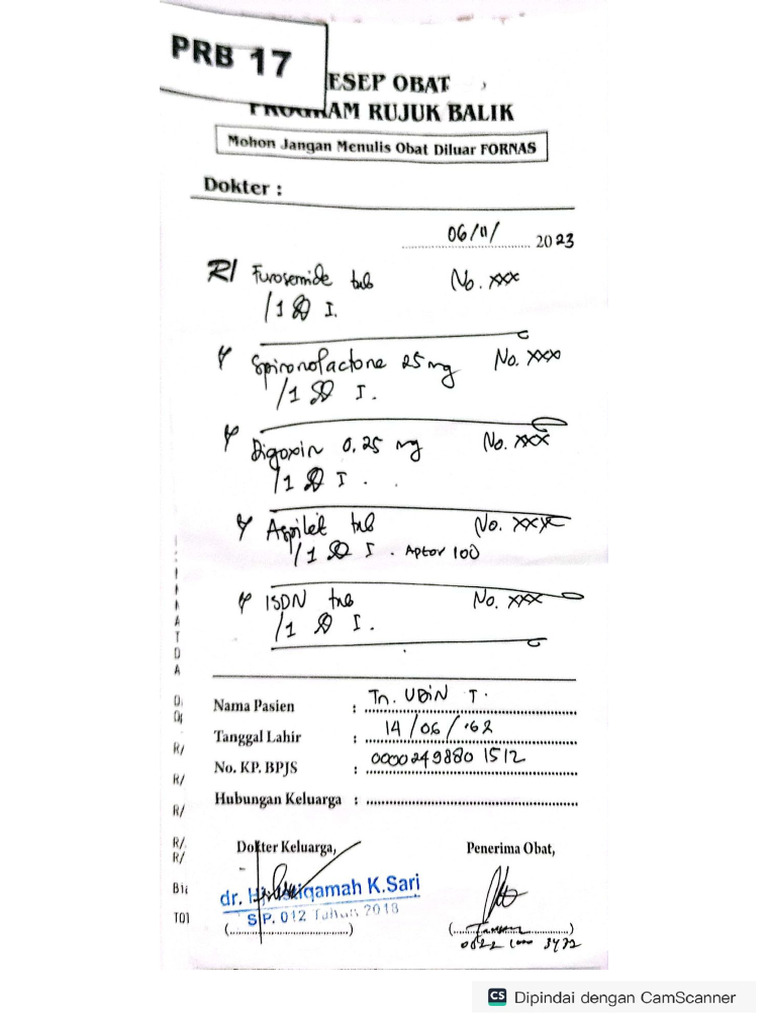 PRB 17
ESEP OBAT
PROGRAM RUJUK BALIK
Mohon Jangan Menulis Obat Diluar FORNAS
Dokter :
06/11/ 2023
R/ Furosemide tab No. xxx
/1 I.
Spironolactone 25 mg No. xxx
/1 I.
Digoxin 0,25 mg No. xxx
/1 I.
Aspilet tab No. xxx
/1 I.
ISDN tab No. xxx
/1 I.
Nama Pasien : Tn. UDIN T.
Tanggal Lahir : 14/06/'62
No. KP. BPJS : 0000249880 1512
Hubungan Keluarga :
Dokter Keluarga, Penerima Obat,
dr. K.Sari
SIP. 012 Tahun 2018
A
T
D
A
R/
R/
R/
R/
R/
CS Dipindai dengan CamScanner